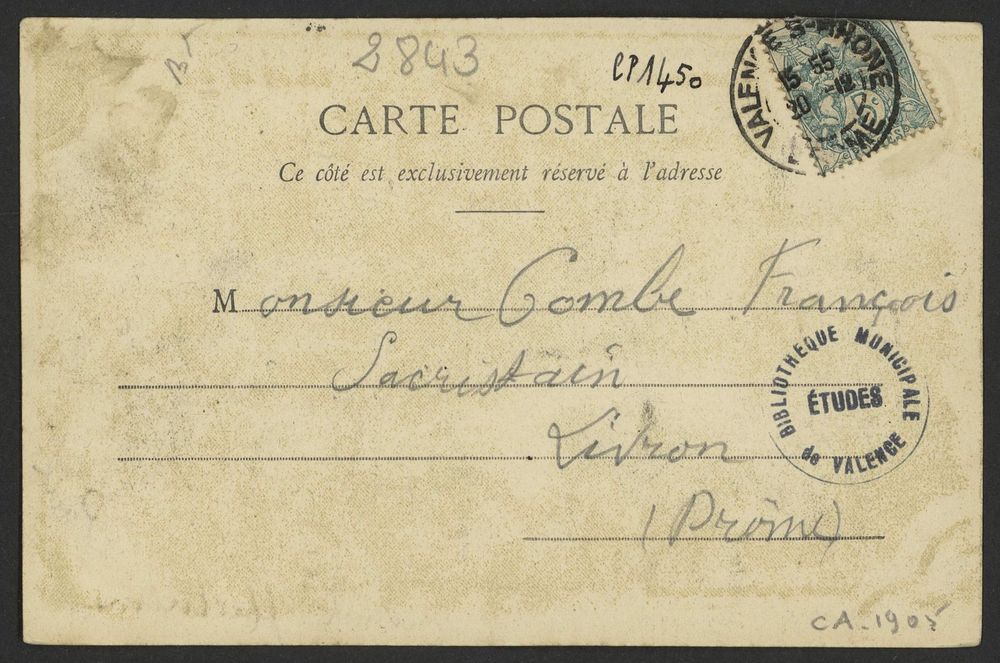 2843
CP1450
VALENCE S-RHONE
15 55
CARTE POSTALE
Ce côté est exclusivement réservé à l'adresse
Monsieur Combe François
Sacristain
Livron
(Drôme)
BIBLIOTHEQUE MUNICIPALE
ÉTUDES
de VALENCE
CA-1905